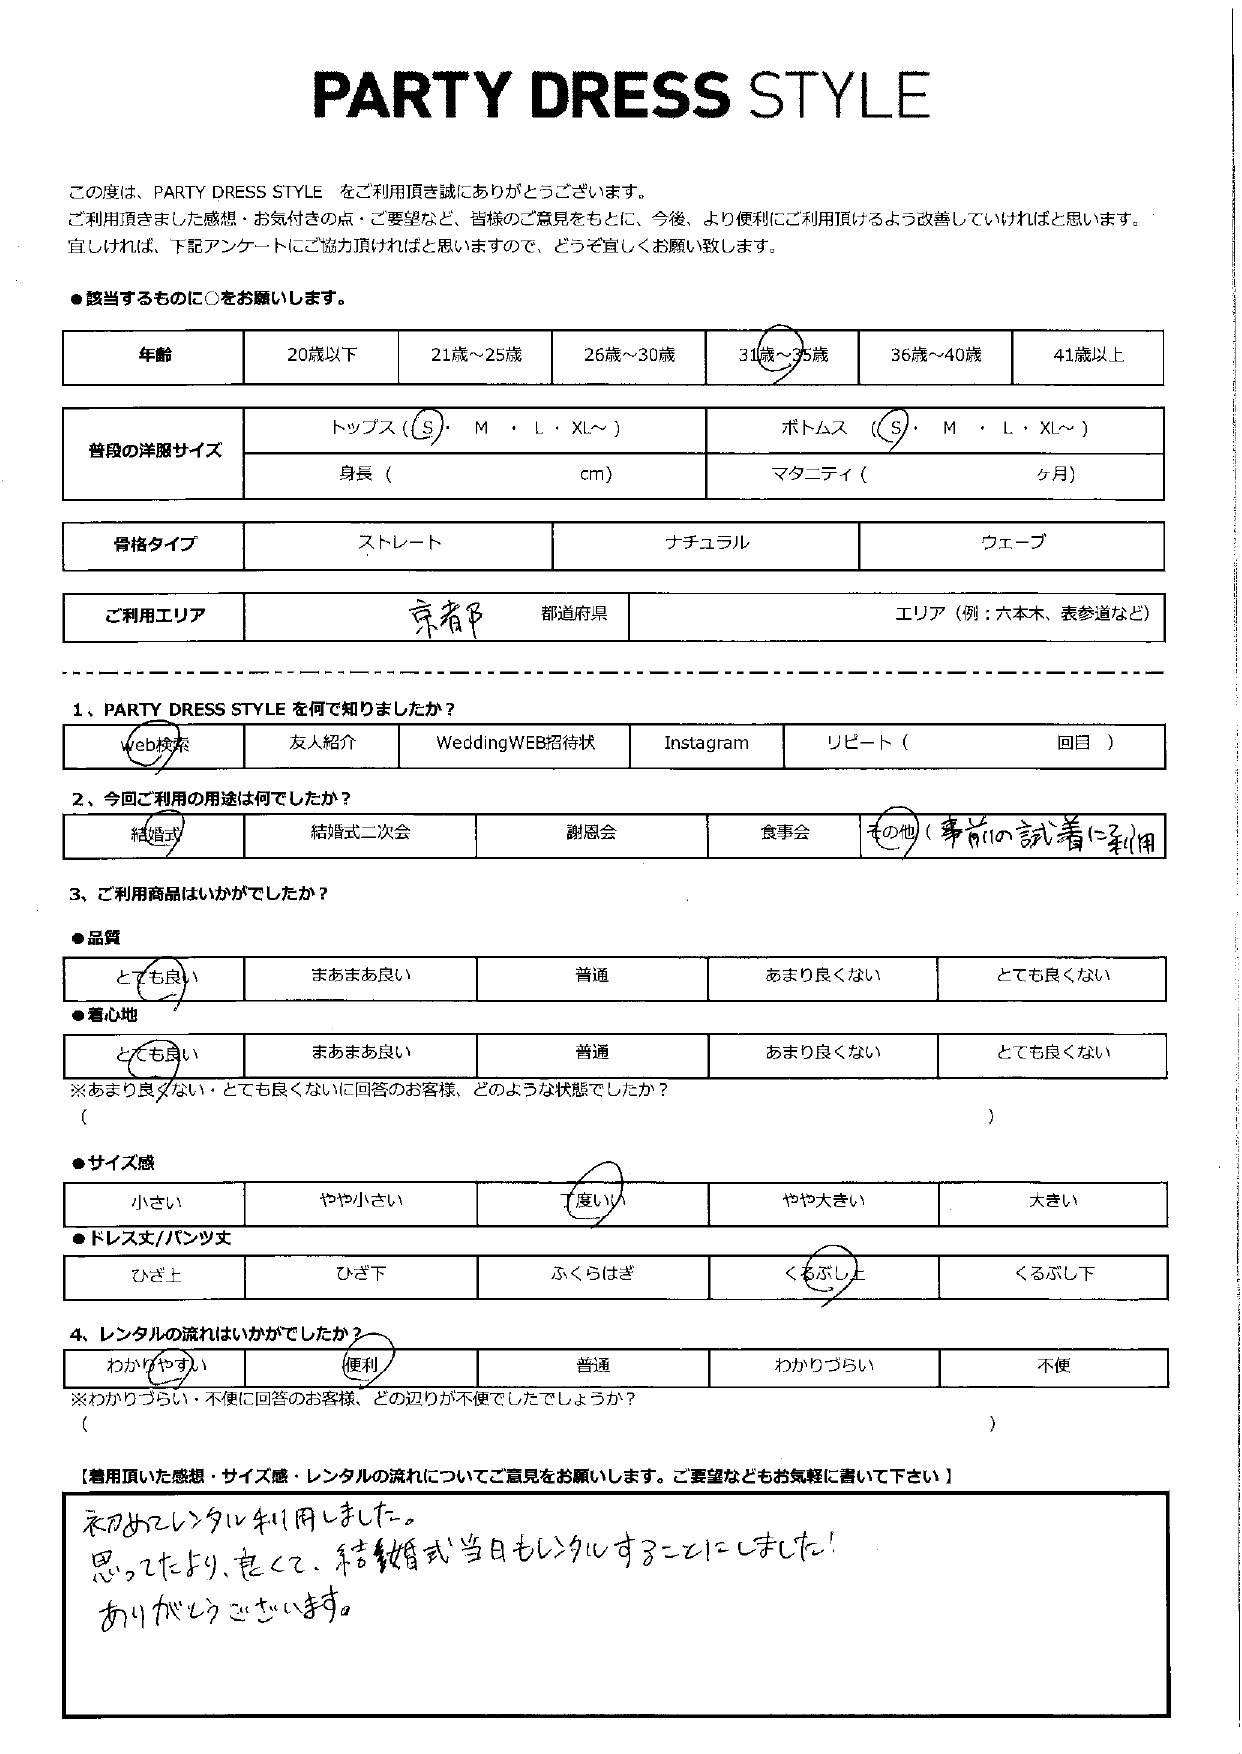 PARTY DRESS STYLE
この度は、PARTY DRESS STYLE をご利用頂き誠にありがとうございます。
ご利用頂きました感想・お気付きの点・ご要望など、皆様のご意見をもとに、今後、より便利にご利用頂けるよう改善していければと思います。
宜しければ、下記アンケートにご協力頂ければと思いますので、どうぞ宜しくお願い致します。
●該当するものに○をお願いします。
年齢 20歳以下 21歳～25歳 26歳～30歳 31歳～35歳 36歳～40歳 41歳以上
普段の洋服サイズ
トップス (S・ M ・ L・ XL～ ) ボトムス (S・ M ・ L・ XL～ )
身長 ( cm) マタニティ ( ヶ月)
骨格タイプ ストレート ナチュラル ウェーブ
ご利用エリア 京都 都道府県 エリア（例：六本木、表参道など）
1、PARTY DRESS STYLE を何で知りましたか？
Web検索 友人紹介 WeddingWEB招待状 Instagram リピート ( 回目 )
2、今回ご利用の用途は何でしたか？
結婚式 結婚式二次会 謝恩会 食事会 その他 ( 事前の試着に利用
3、ご利用商品はいかがでしたか？
●品質
とても良い まあまあ良い 普通 あまり良くない とても良くない
●着心地
とても良い まあまあ良い 普通 あまり良くない とても良くない
※あまり良くない・とても良くないに回答のお客様、どのような状態でしたか？
( )
●サイズ感
小さい やや小さい 丁度いい やや大きい 大きい
●ドレス丈/パンツ丈
ひざ上 ひざ下 ふくらはぎ くるぶし上 くるぶし下
4、レンタルの流れはいかがでしたか？
わかりやすい 便利 普通 わかりづらい 不便
※わかりづらい・不便に回答のお客様、どの辺りが不便でしたでしょうか？
( )
【着用頂いた感想・サイズ感・レンタルの流れについてご意見をお願いします。ご要望などもお気軽に書いて下さい】
初めてレンタル利用しました。
思ってたより、良くて、結婚式当日もレンタルすることにしました！
ありがとうございます。